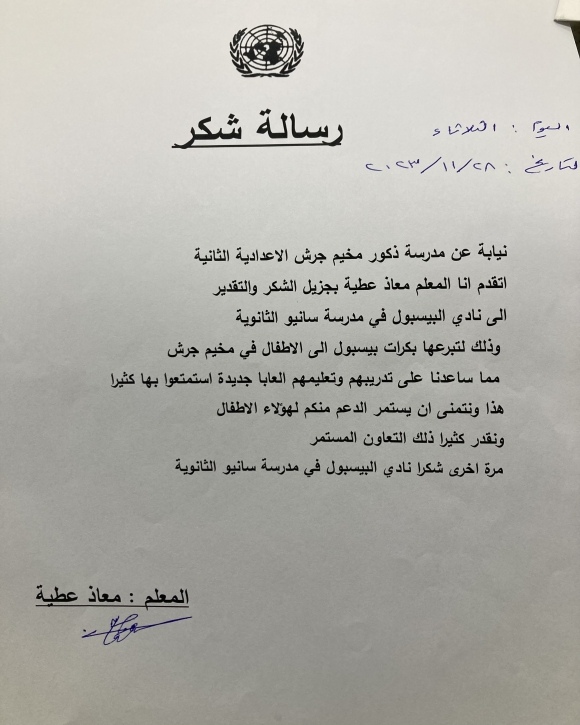 رسالة شكر
اليوم : الثلاثاء
التاريخ : ٢٠٢٣/١١/٢٨
نيابة عن مدرسة ذكور مخيم جرش الاعدادية الثانية
اتقدم انا المعلم معاذ عطية بجزيل الشكر والتقدير
الى نادي البيسبول في مدرسة سانيو الثانوية
وذلك لتبرعها بكرات بيسبول الى الاطفال في مخيم جرش
مما ساعدنا على تدريبهم وتعليمهم العابا جديدة استمتعوا بها كثيرا
هذا ونتمنى ان يستمر الدعم منكم لهؤلاء الاطفال
ونقدر كثيرا ذلك التعاون المستمر
مرة اخرى شكرا نادي البيسبول في مدرسة سانيو الثانوية
المعلم : معاذ عطية